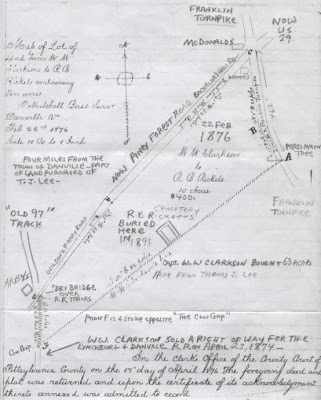 FRANKLIN
TURNPIKE
NOW
US
29
McDONALDS
Map of Lot of
land from W. W.
Clarkson to R. B.
Rickets containing
ten acres
Danville Va
Feb 22nd 1876
Scale 20 Po to 1 Inch
NOW PINEY FOREST ROAD
22 FEB
1876
W. W. Clarkson
to
R. B. Rickets
10 acres
$400.
B
A
PERSIMMON
TREE
FOUR MILES FROM THE
TOWN OF DANVILLE - PART
OF LAND PURCHASED OF
T. J. LEE -
FRANKLIN
TURNPIKE
"OLD 97"
TRACK
CEMETERY
RICKETTS
R.E.R.
BURIED
HERE
IN 1891
CAPT. W.W. CLARKSON BOUGHT 63 ACRES
HERE FROM THOMAS J. LEE
ARBYS
"DRY BRIDGE"
OVER
R.R. TRACKS
POINT F IS A STONE OPPOSITE "THE COW GAP"
Cow Gap
W.W. CLARKSON SOLD A RIGHT OF WAY FOR THE
LYNCHBURG & DANVILLE R. R. ON APRIL 3, 1874 -
In the Clerks Office of the County Court of
Pittsylvania County on the 17th day of April 1876 The foregoing deed and
plat was returned and upon the certificate of its acknowledgment
thereto annexed was admitted to record